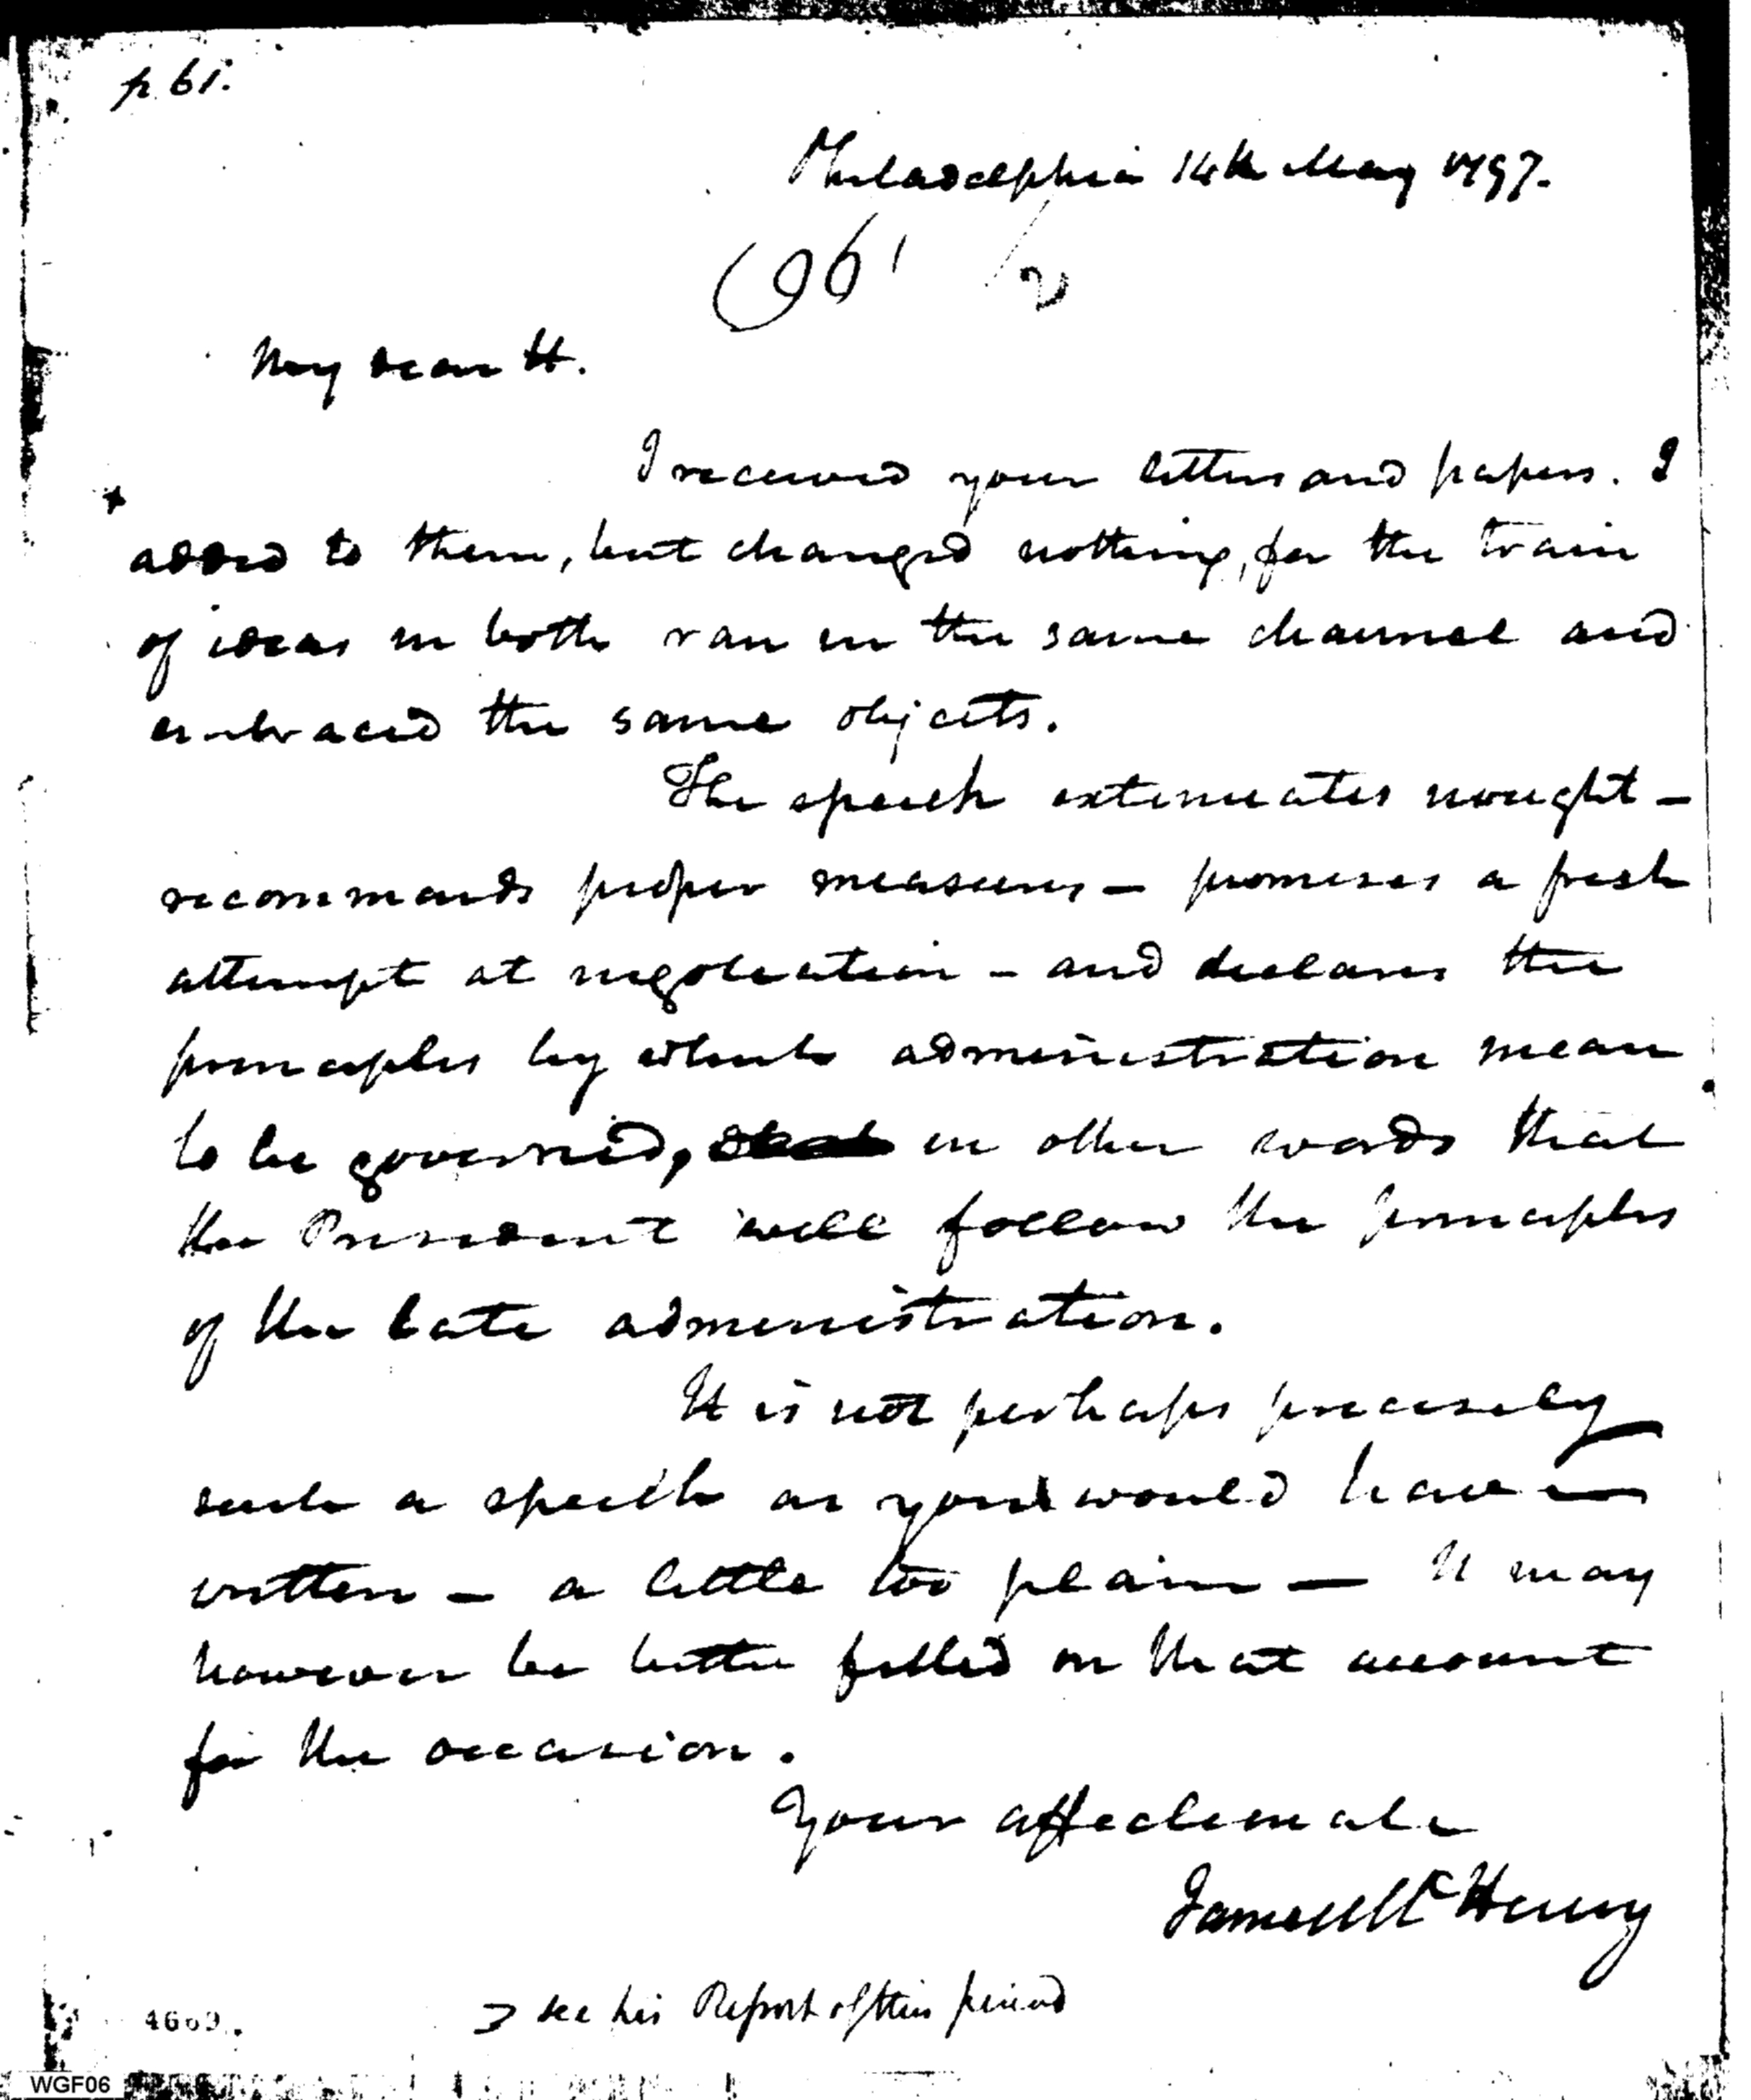 p. 61.
Philadelphia 14th May 1797.
My dear H.
I received your letters and papers. I
added to them, but changed nothing, for the train
of ideas in both ran in the same channel and
embraced the same objects.
The speech extenuates nought -
recommends proper measures - promises a fresh
attempt at negotiation - and declares the
principles by which administration mean
to be governed, in other words that
the President will follow the principles
of the late administration.
It is not perhaps precisely
such a speech as you would have
written - a little too plain - It may
however be better fitted on that account
for the occasion.
Your affectionate
James McHenry
see his Report of this period
WGF06